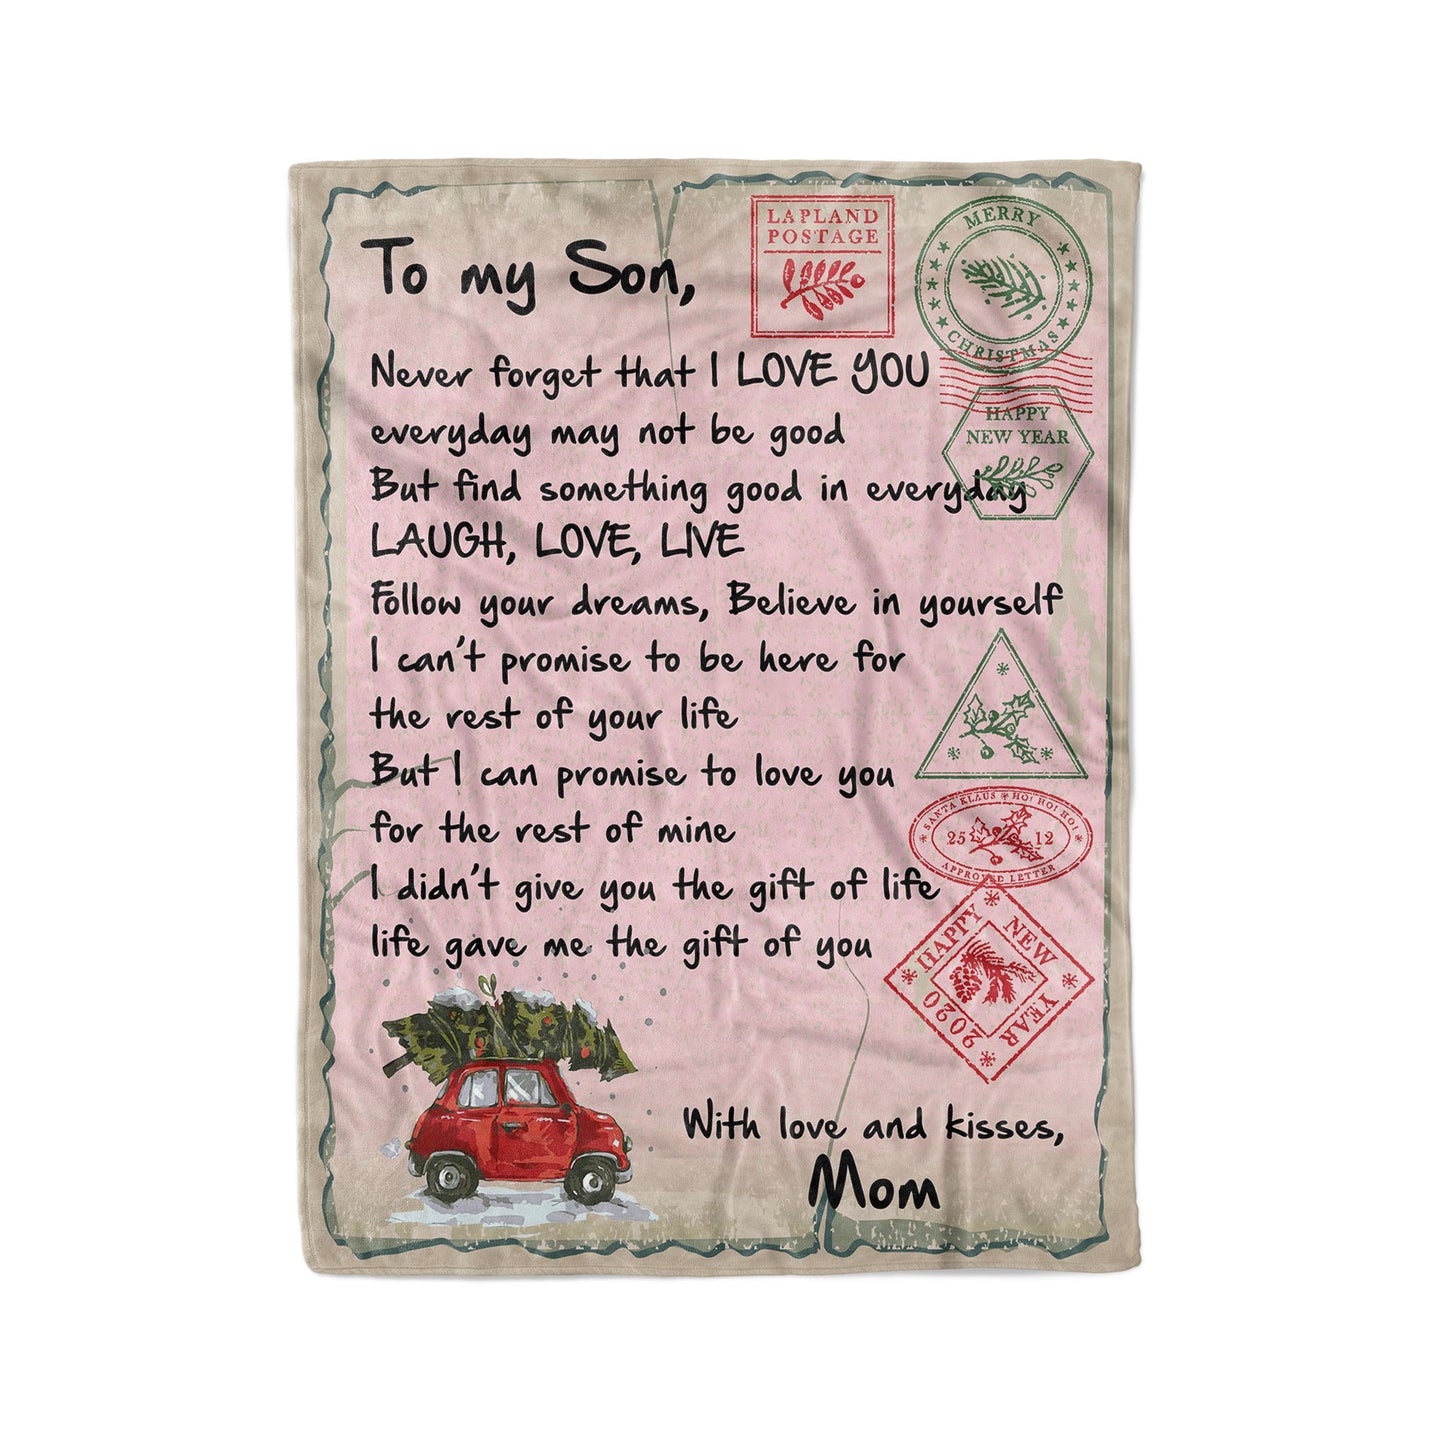 To my Son,
LAPLAND
POSTAGE
MERRY
CHRISTMAS
Never forget that I LOVE YOU
HAPPY
NEW YEAR
everyday may not be good
But find something good in everyday
LAUGH, LOVE, LIVE
Follow your dreams, Believe in yourself
I can't promise to be here for
the rest of your life
But I can promise to love you
SANTA KLAUS * HO! HO! HO!
25 12
APPROVED LETTER
for the rest of mine
I didn't give you the gift of life
life gave me the gift of you
HAPPY NEW
YEAR 2020
With love and kisses,
Mom